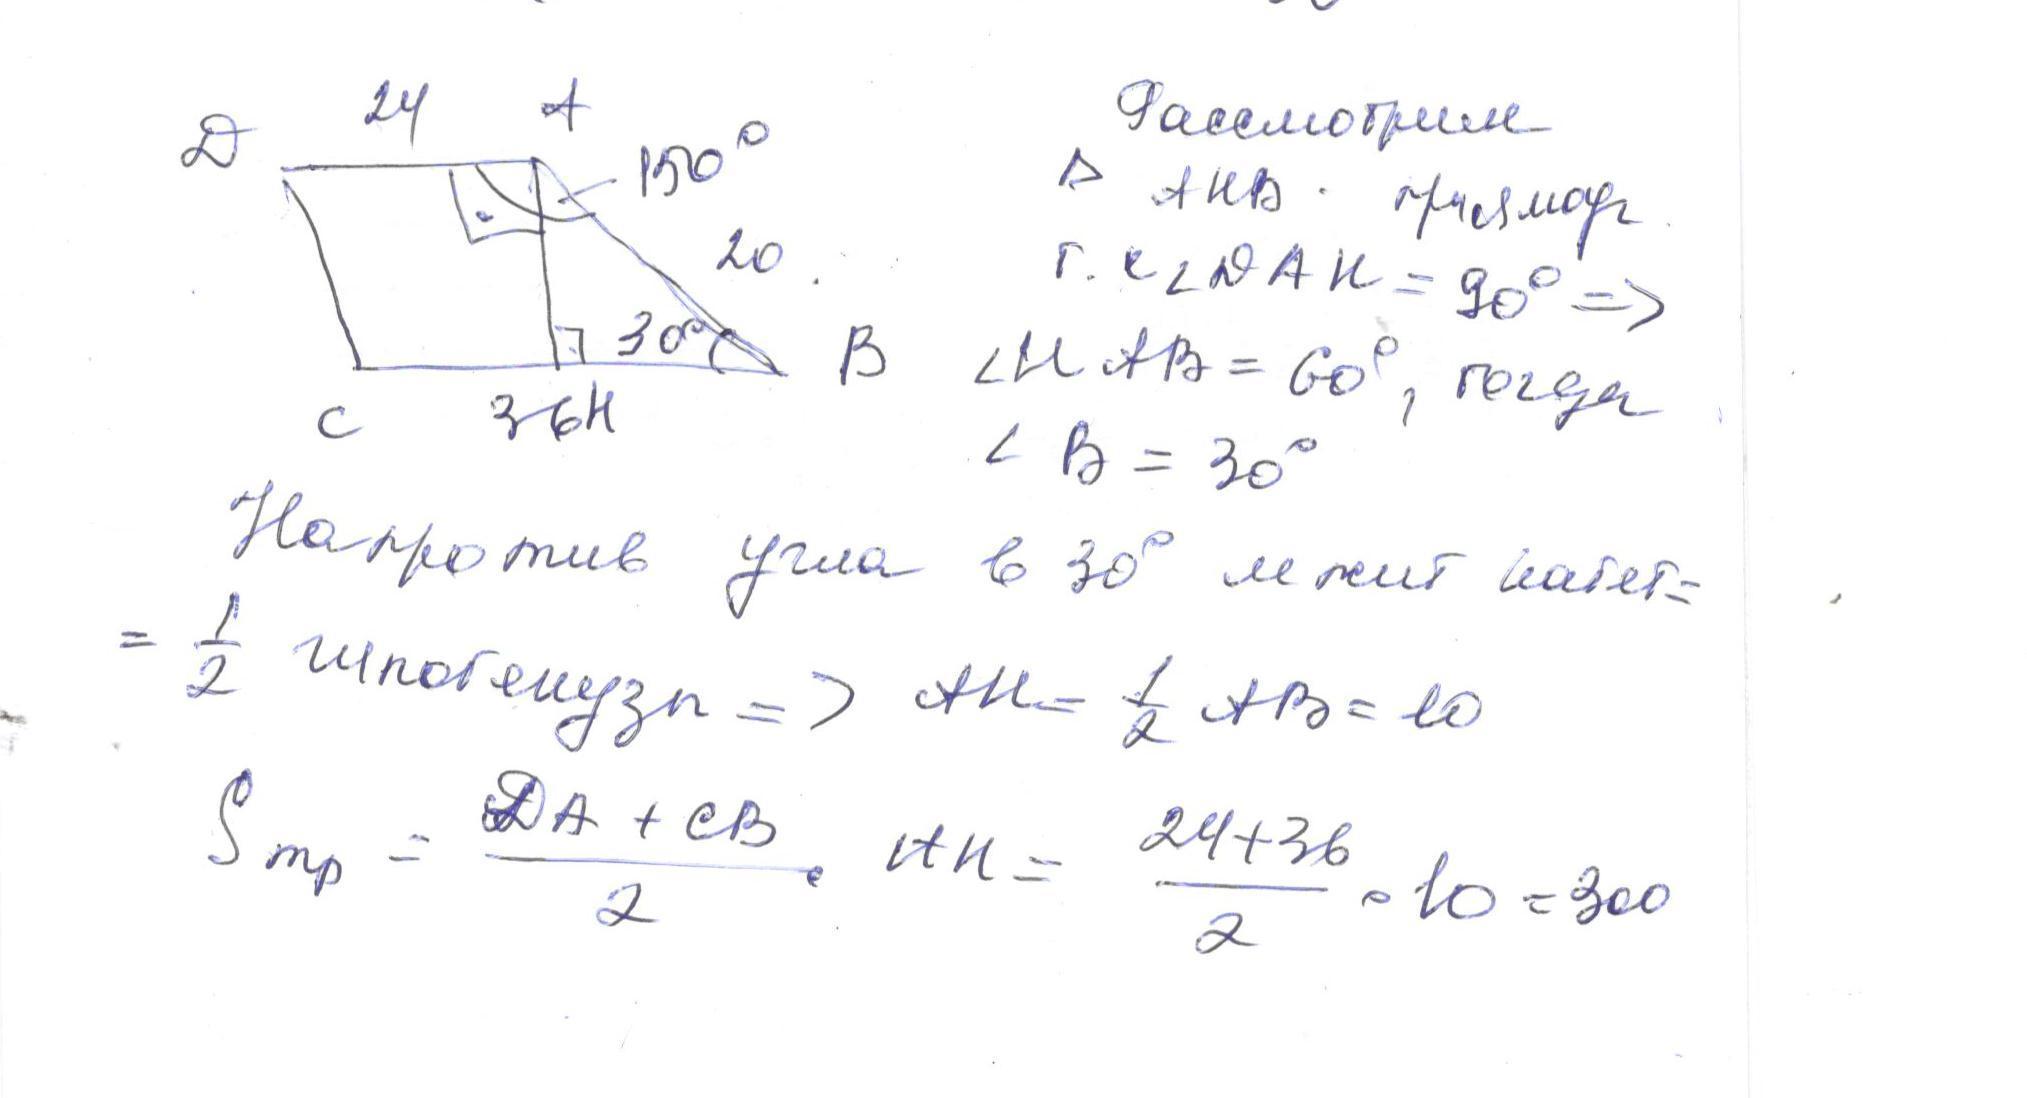 24 A
D 150°
20
30° B
C 36 H
Рассмотрим
△ AHB прямоуг.
т.к ∠DAH = 90° =>
∠HAB = 60°, тогда
∠B = 30°
Напротив угла в 30° лежит катет =
= 1/2 гипотенузы => AH = 1/2 AB = 10
Sтр = (DA + CB)/2 · AH = (24+36)/2 · 10 = 300